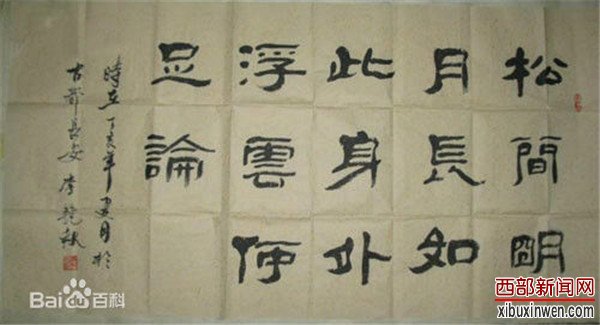 松間明
月長如
此身外
浮雲何
足論
時在丁亥年夏月於
古都長安 李艳秋
Bai百科
西部新闻网
xibuxinwen.com